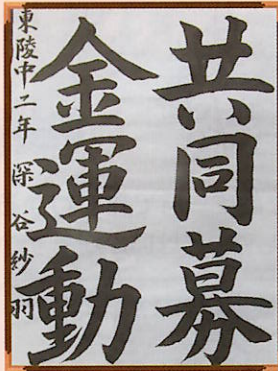 共同募
金運動
東陵中二年 深谷紗羽